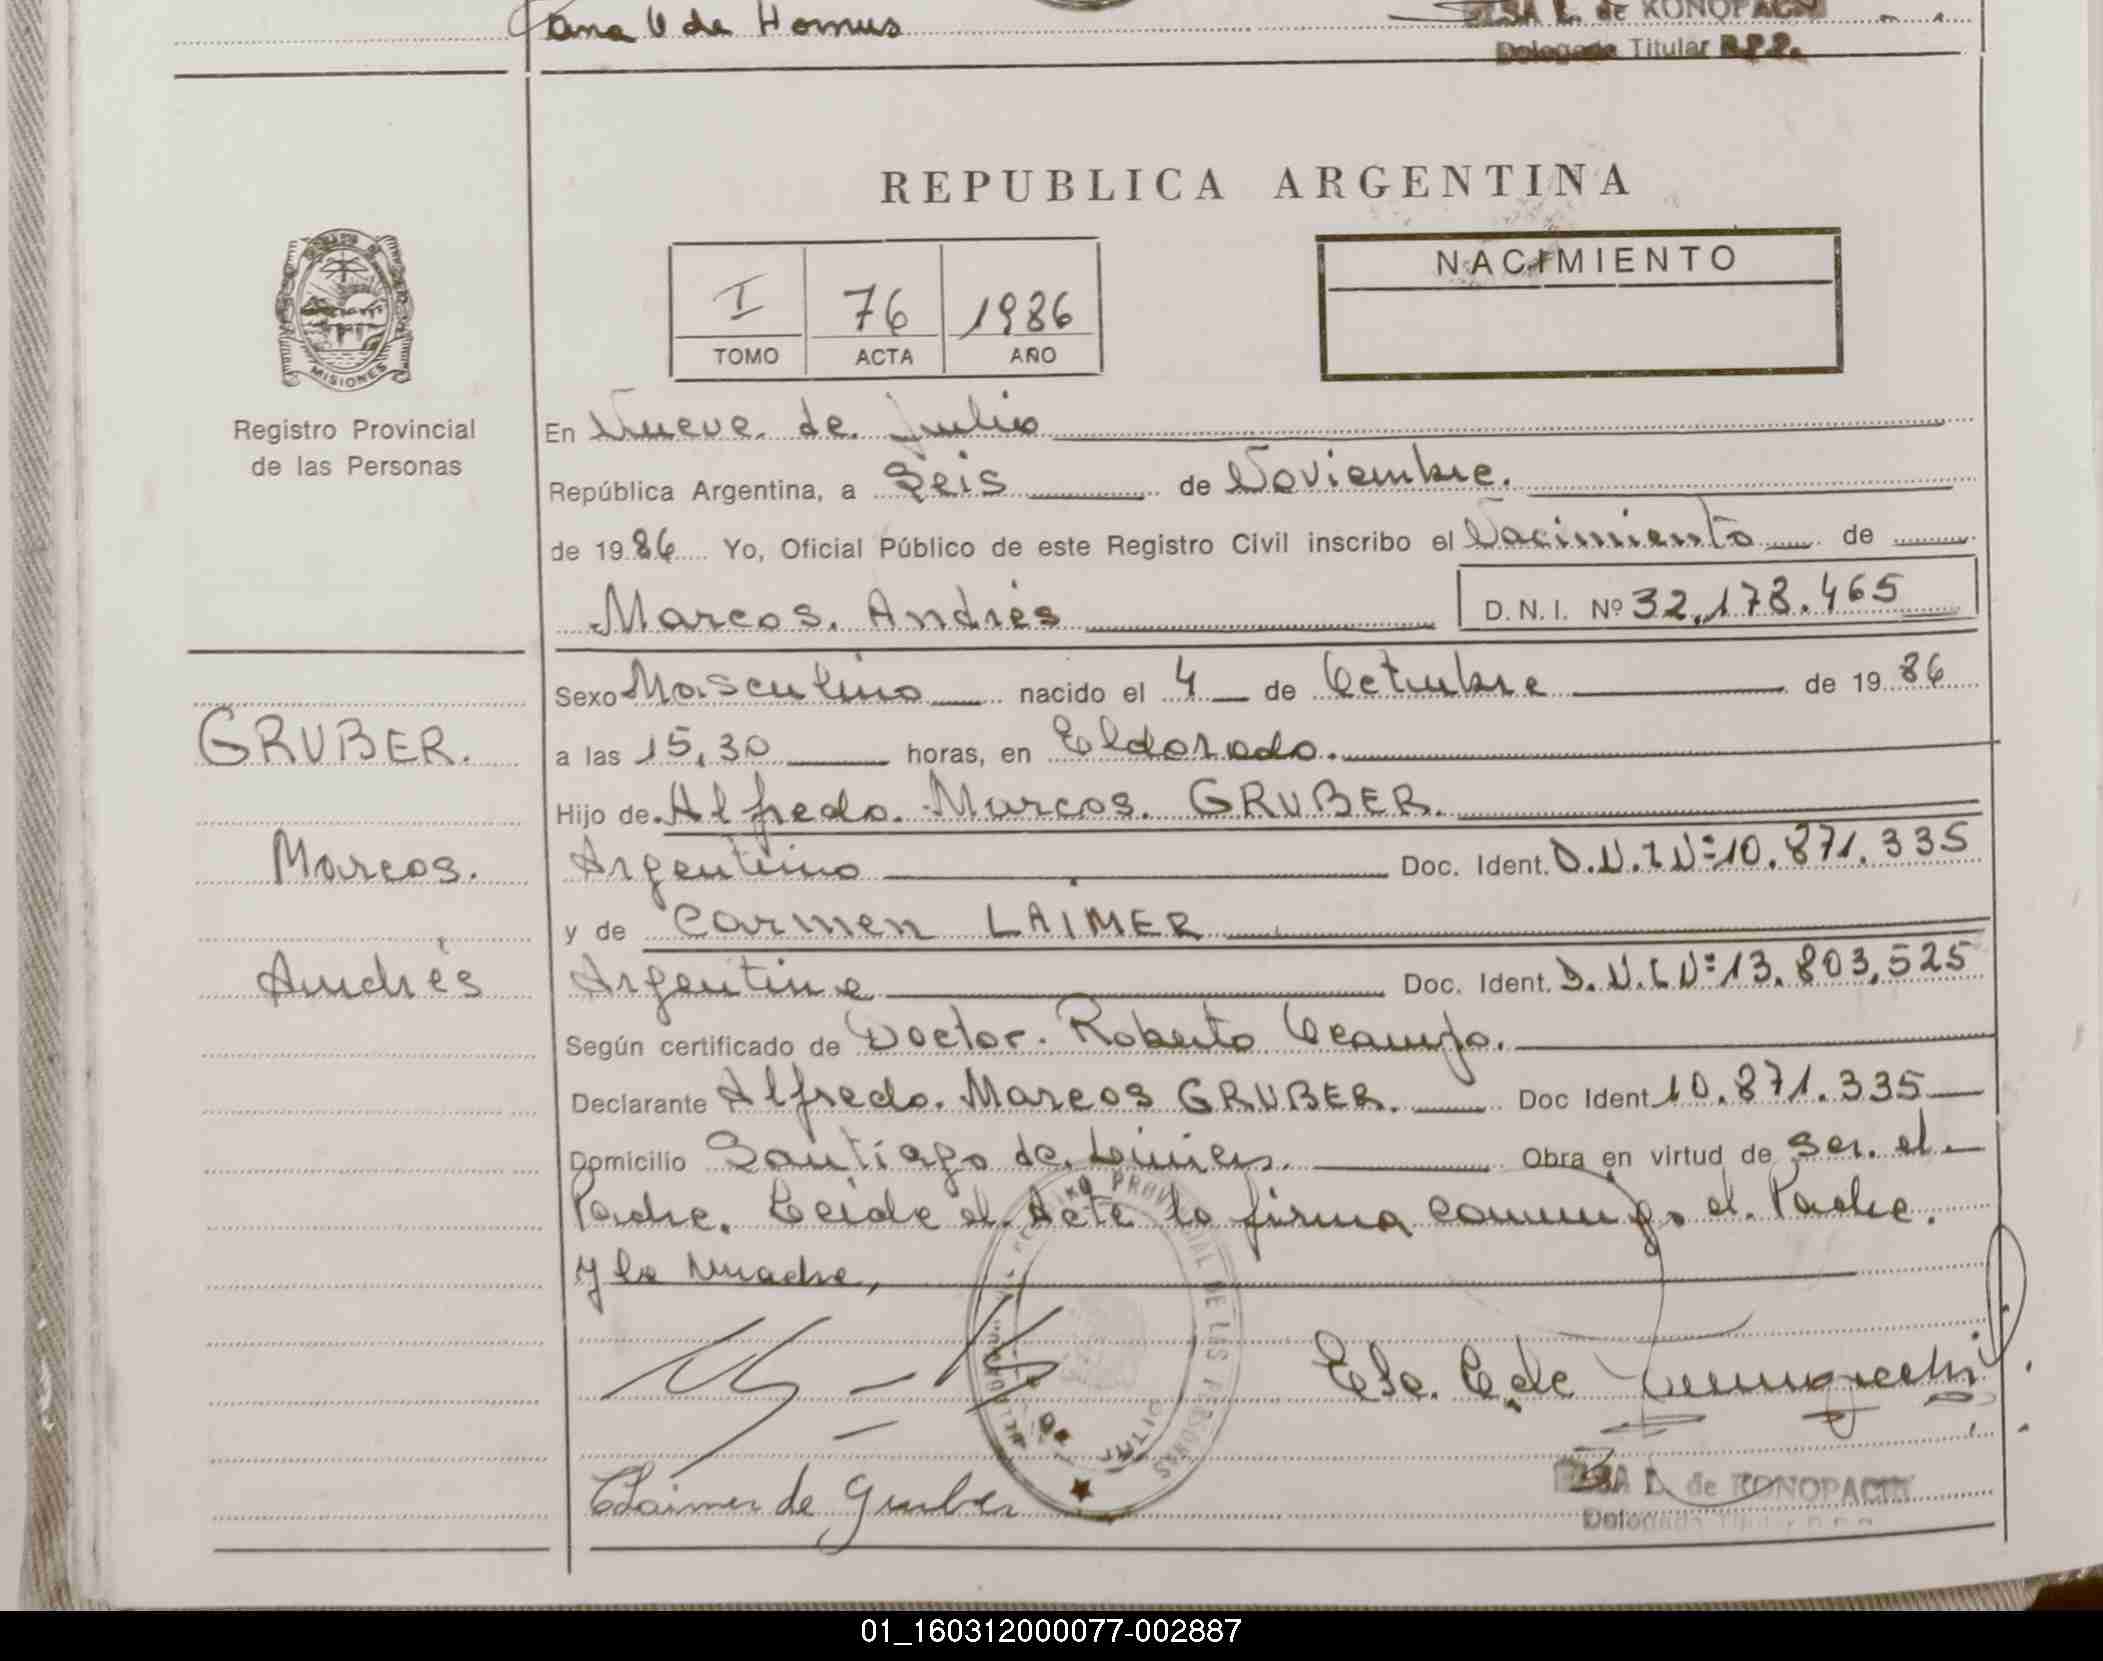 Jana V de Homus
ELSA L. de KONOPACKI
Delegada Titular R.P.P.
REPUBLICA ARGENTINA
NACIMIENTO
I 76 1986
TOMO ACTA AÑO
MISIONES
Registro Provincial
de las Personas
En Nueve de Julio
República Argentina, a Seis de Noviembre.
de 1986 Yo, Oficial Público de este Registro Civil inscribo el Nacimiento de
Marcos Andrés D.N.I. Nº 32.178.465
Sexo Masculino nacido el 4 de Octubre de 1986
GRUBER.
a las 15,30 horas, en Eldorado.
Hijo de Alfredo Marcos GRUBER.
Marcos.
Argentino Doc. Ident. D.N.I Nº 10.871.335
y de Carmen LAIMER
Andrés
Argentina Doc. Ident. D.N.I Nº 13.803.525
Según certificado de Doctor Roberto Ocampo.
Declarante Alfredo Marcos GRUBER. Doc Ident 10.871.335
Domicilio Santiago de Liniers. Obra en virtud de ser el
Padre. Leida el Acta la firma conmigo el Padre.
y la Madre,
REGISTRO PROVINCIAL DE LAS PERSONAS
JULIO
CLaimer de Gruber
ELSA L. de KONOPACKI
Delegada Titular R.P.P.
01_160312000077-002887